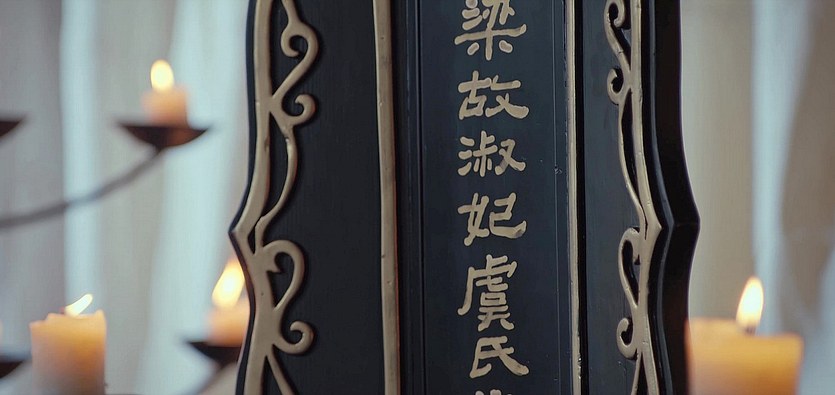 梁故淑妃虞氏